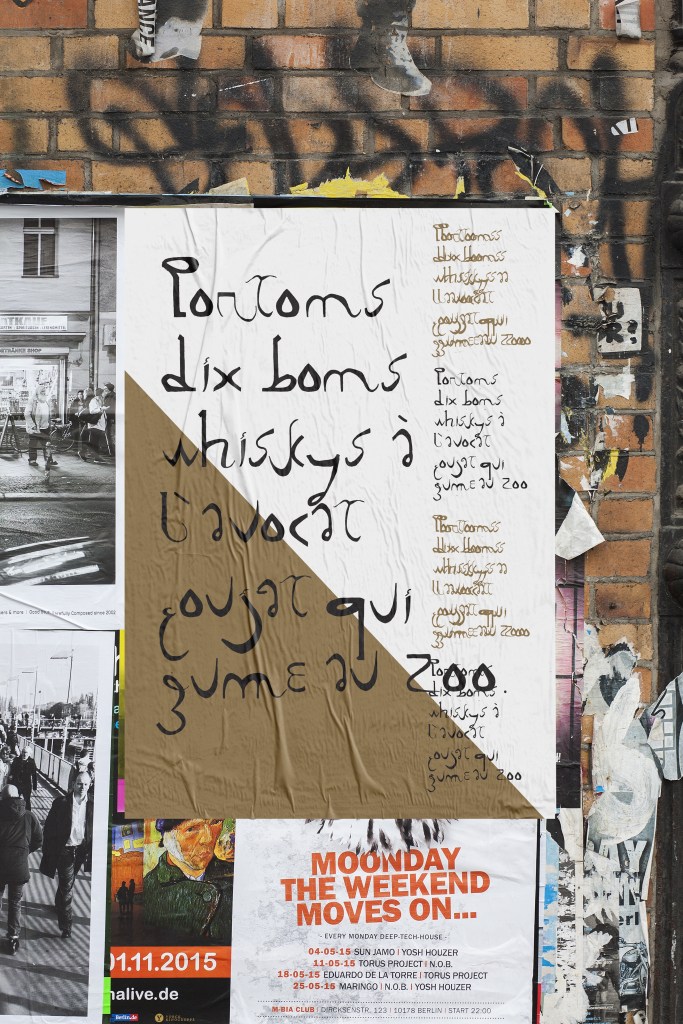 ANCE
Portoms
dix boms
whiskys à
l'avocat
goujat qui
fume au Zoo.
Portomss
dix bomss
whiskys à
l'avocat
goujat qui
fume au Zooo
Portoms
dix boms
whiskys à
l'avocat
goujat qui
fume au Zoo
Portomss
dix bomss
whiskys à
l'avocat
goujat qui
fume au Zooo
Portoms
dix boms
whiskys à
l'avocat
goujat qui
fume au Zoo
MOONDAY
THE WEEKEND
MOVES ON...
- EVERY MONDAY DEEP-TECH-HOUSE -
04-05-15 SUN JAMO | YOSH HOUZER
11-05-15 TORUS PROJECT | N.O.B.
18-05-15 EDUARDO DE LA TORRE | TORUS PROJECT
25-05-15 MARINGO | N.O.B. | YOSH HOUZER
M-BIA CLUB | DIRCKSENSTR. 123 | 10178 BERLIN | START 22:00
01.11.2015
nalive.de
Berlin.de